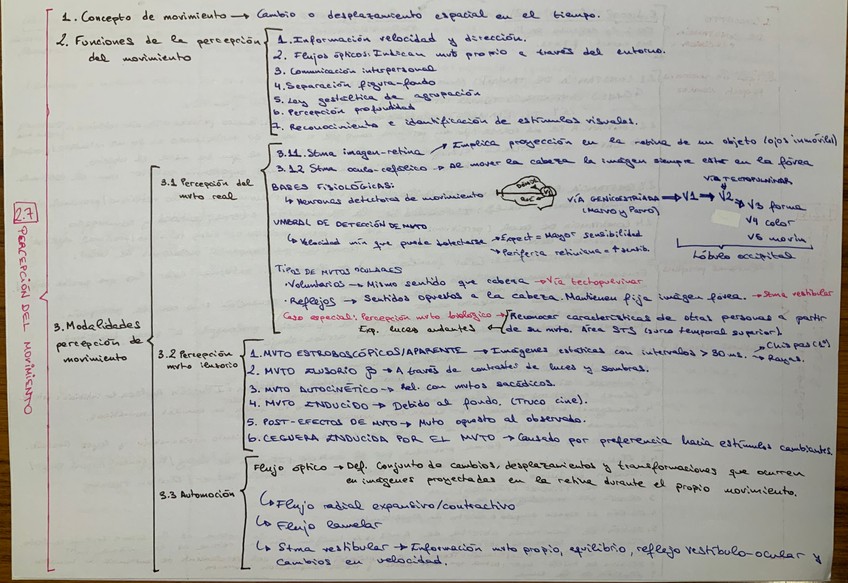 2.7 PERCEPCIÓN DEL MOVIMIENTO
1. Concepto de movimiento → Cambio o desplazamiento espacial en el tiempo.
2. Funciones de la percepción del movimiento
1. Información velocidad y dirección.
2. Flujos ópticos: Indican mvto propio a través del entorno.
3. Comunicación interpersonal
4. Separación figura-fondo
5. Ley gestáltica de agrupación
6. Percepción profundidad
7. Reconocimiento e identificación de estímulos visuales.
3. Modalidades percepción de movimiento
3.1 Percepción del mvto real
3.1.1. Stma imagen-retina → Implica proyección en la retina de un objeto (ojos inmóviles)
3.1.2 Stma oculo-cefálico → Al mover la cabeza la imagen siempre está en la fóvea
BASES FISIOLÓGICAS:
↳ Neuronas detectoras de movimiento
VÍA GENICOESTRIADA → V1 → V2
(MAGNO y PARVO)
VÍA TECTOPULVINAR
V3 forma
V4 color
V5 movim
Lóbulo occipital
UMBRAL DE DETECCIÓN DE MVTO
↳ Velocidad mín que puede detectarse → Expect = Mayor sensibilidad
→ Periferia retiniana = ↑ sensib.
TIPOS DE MVTOS OCULARES
· Voluntarios → Mismo sentido que cabeza → Vía tectopulvinar
· Reflejos → Sentidos opuestos a la cabeza. Mantienen fija imagen fóvea. → Stma vestibular
Caso especial: Percepción mvto biológico → Reconocer características de otras personas a partir
Exp. luces andantes ← de su mvto. Área STS (surco temporal superior).
3.2 Percepción mvto ilusorio
1. MVTO ESTROBOSCÓPICOS/APARENTE → Imágenes estáticas con intervalos > 30 ms. → Chispas
→ Rayas.
2. MVTO ILUSORIO → A través de contraste de luces y sombras.
3. MVTO AUTOCINÉTICO → Rel. con mvtos sacádicos.
4. MVTO INDUCIDO → Debido al fondo. (Truco cine).
5. POST-EFECTOS DE MVTO → Mvto opuesto al observado.
6. CEGUERA INDUCIDA POR EL MVTO → Causado por preferencia hacia estímulos cambiantes.
3.3 Automoción
Flujo óptico → Def. Conjunto de cambios, desplazamientos y transformaciones que ocurren
en imágenes proyectadas en la retina durante el propio movimiento.
↳ Flujo radial expansivo/contractivo
↳ Flujo lamelar
↳ Stma vestibular → Información mvto propio, equilibrio, reflejo vestíbulo-ocular y
cambios en velocidad.